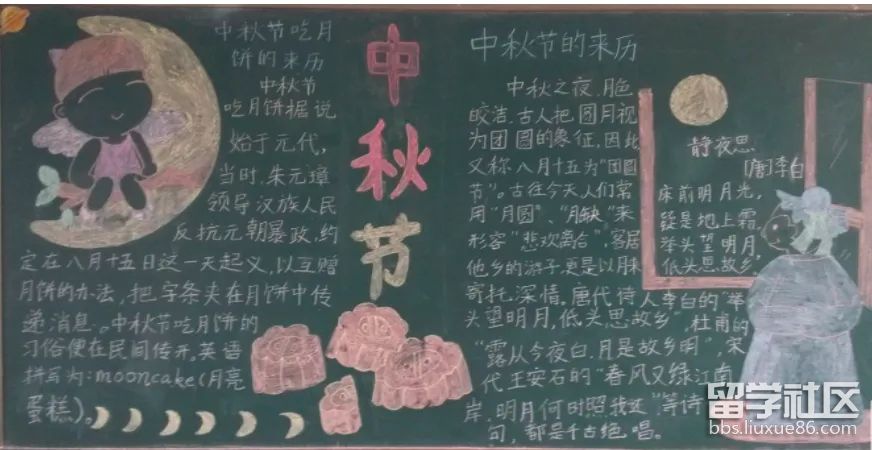 中秋节吃月
饼的来历
中秋节
吃月饼据说
始于元代，
当时，朱元璋
领导汉族人民
反抗元朝暴政，约
定在八月十五日这一天起义，以互赠
月饼的办法，把字条夹在月饼中传
递消息。中秋节吃月饼的
习俗便在民间传开。英语
拼写为：mooncake(月亮
蛋糕)。
中秋节
中秋节的来历
中秋之夜，月色
皎洁，古人把圆月视
为团圆的象征，因此
又称八月十五为“团圆
节”。古往今天人们常
用“月圆”、“月缺”来
形容“悲欢离合”，客居
他乡的游子，更是以月来
寄托深情。唐代诗人李白的“举
头望明月，低头思故乡”，杜甫的
“露从今夜白，月是故乡明”宋
代王安石的“春风又绿江南
岸，明月何时照我还”等诗
句，都是千古绝唱。
静夜思
[唐]李白
床前明月光，
疑是地上霜，
举头望明月，
低头思故乡。
留学社区
bbs.liuxue86.com